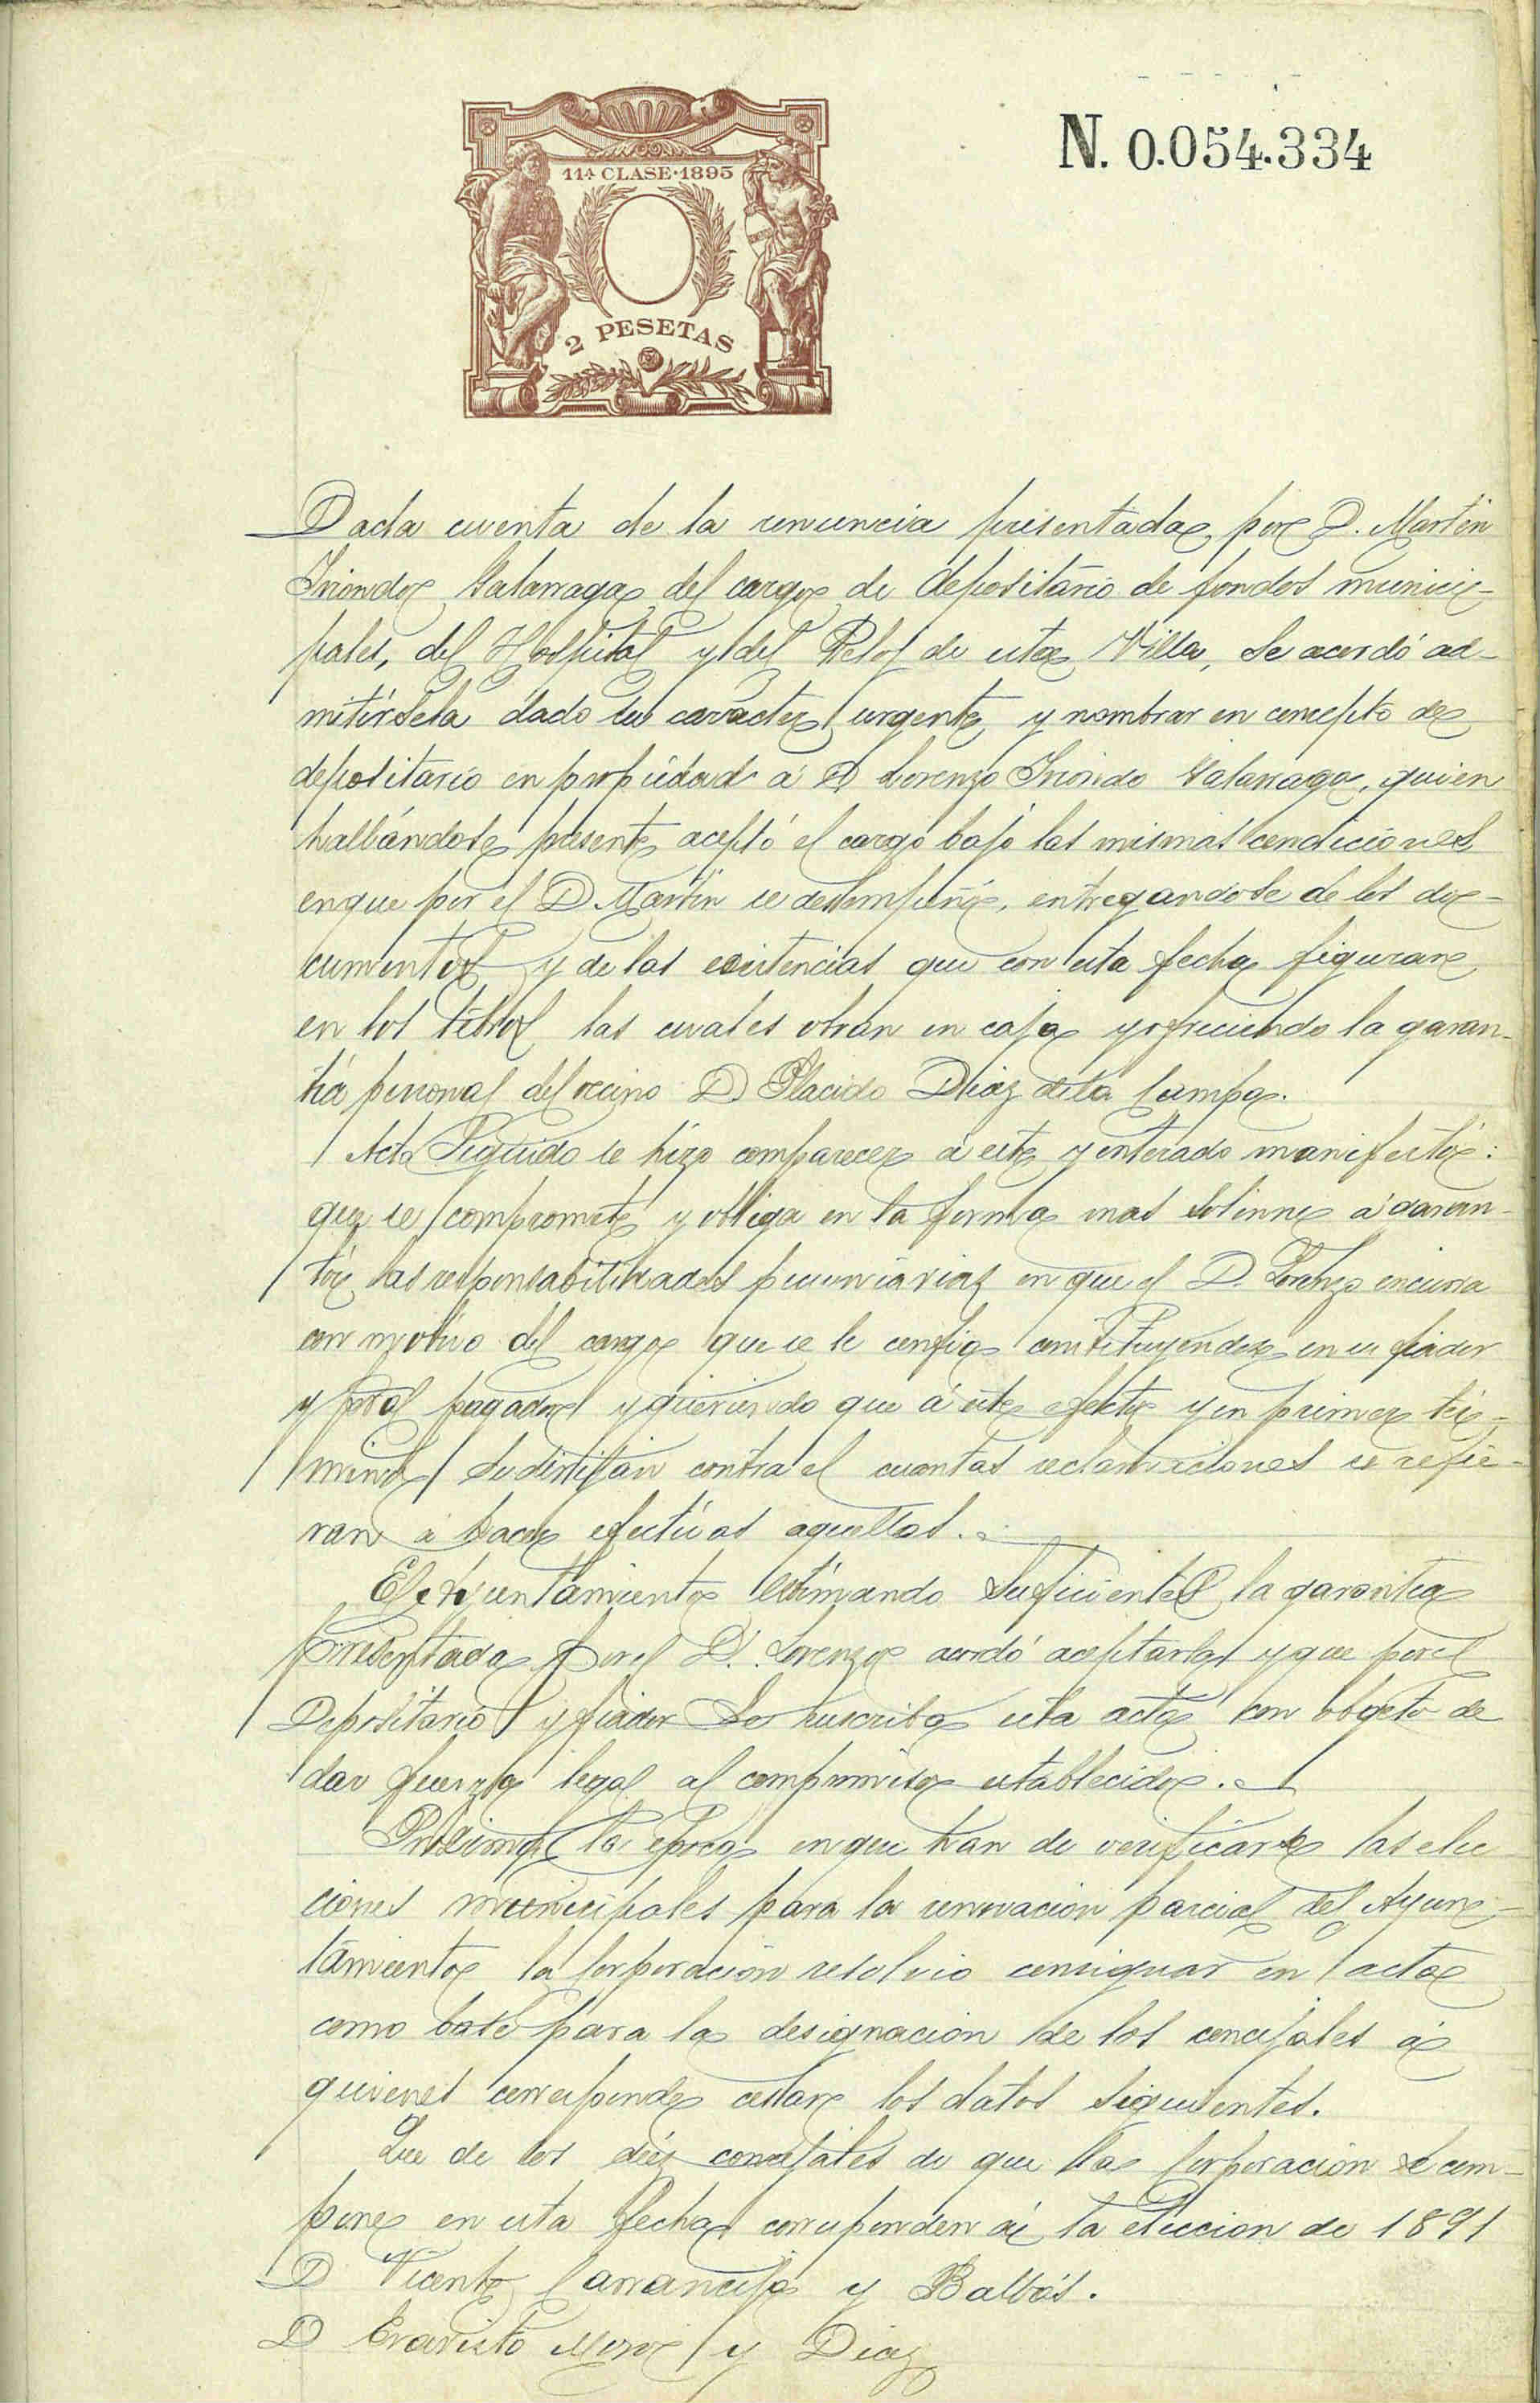 11ª CLASE·1895
2 PESETAS
N. 0.054.334
Dada cuenta de la renuncia presentada por D. Martín
Iriondo Galarraga del cargo de depositario de fondos munici-
pales, del Hospital y del Reloj de esta Villa, se acordó ad-
mitirsela dado su carácter urgente y nombrar en concepto de
depositario en propiedad á D Lorenzo Iriondo Galarraga, quien
hallándose presente aceptó el cargo bajo las mismas condiciones
en que por el D. Martín se desempeñó, entregandose de los do-
cumentos y de las existencias que con esta fecha figuran
en los libros las cuales obran en caja y ofreciendo la garan-
tía personal del vecino D Placido Diaz de la Campa.
Acto Seguido se hizo comparecer á este y enterado manifestó:
que se compromete y obliga en la forma mas solenne á garan-
tir las responsabilidades pecuniarias en que el D. Lorenzo incurra
con motivo del cargo que se le confia constituyendose en su fiador
y pral pagador y queriendo que á este efecto y en primer tér-
mino se dirijan contra el cuantas reclamaciones se refie-
ran á hacer efectivas aquellas.
El Ayuntamiento estimando suficiente la garantia
presentada por el D. Lorenzo acordó aceptarla y que por el
Depositario y fiador se suscriba esta acta con objeto de
dar fuerza legal al compromiso establecido.
Próxima la época en que han de verificarse las elec
ciones municipales para la renovacion parcial del Ayun-
tamiento la Corporación resolvio consignar en acta
como base para la designacion de los concejales á
quienes corresponde cesar los datos siguientes.
Que de los diez concejales de que la Corporacion se com-
pone en esta fecha corresponden á la eleccion de 1891
D Vicente Carranceja y Balbás.
D Evaristo Mier y Diaz